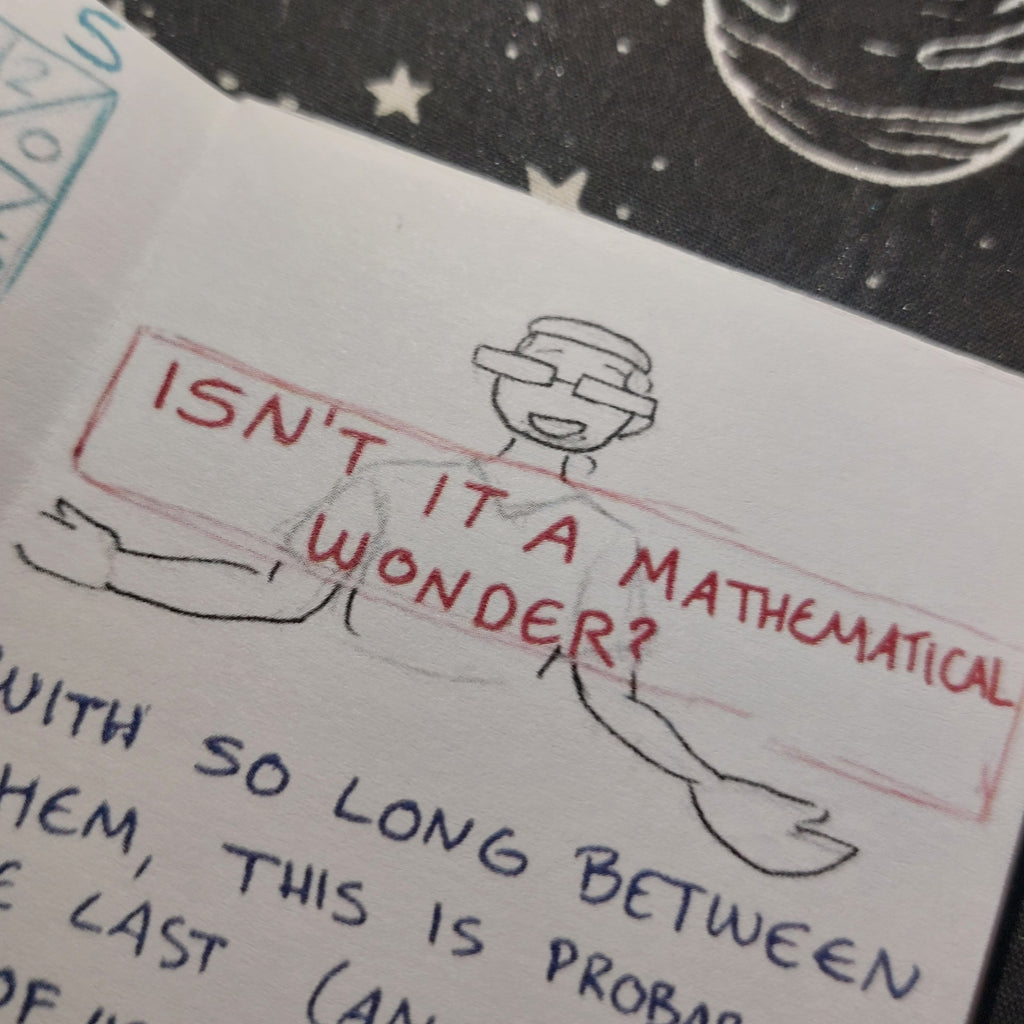 S
2
0
ISN'T IT A MATHEMATICAL
WONDER?
WITH SO LONG BETWEEN
THIS IS
LAST
OF